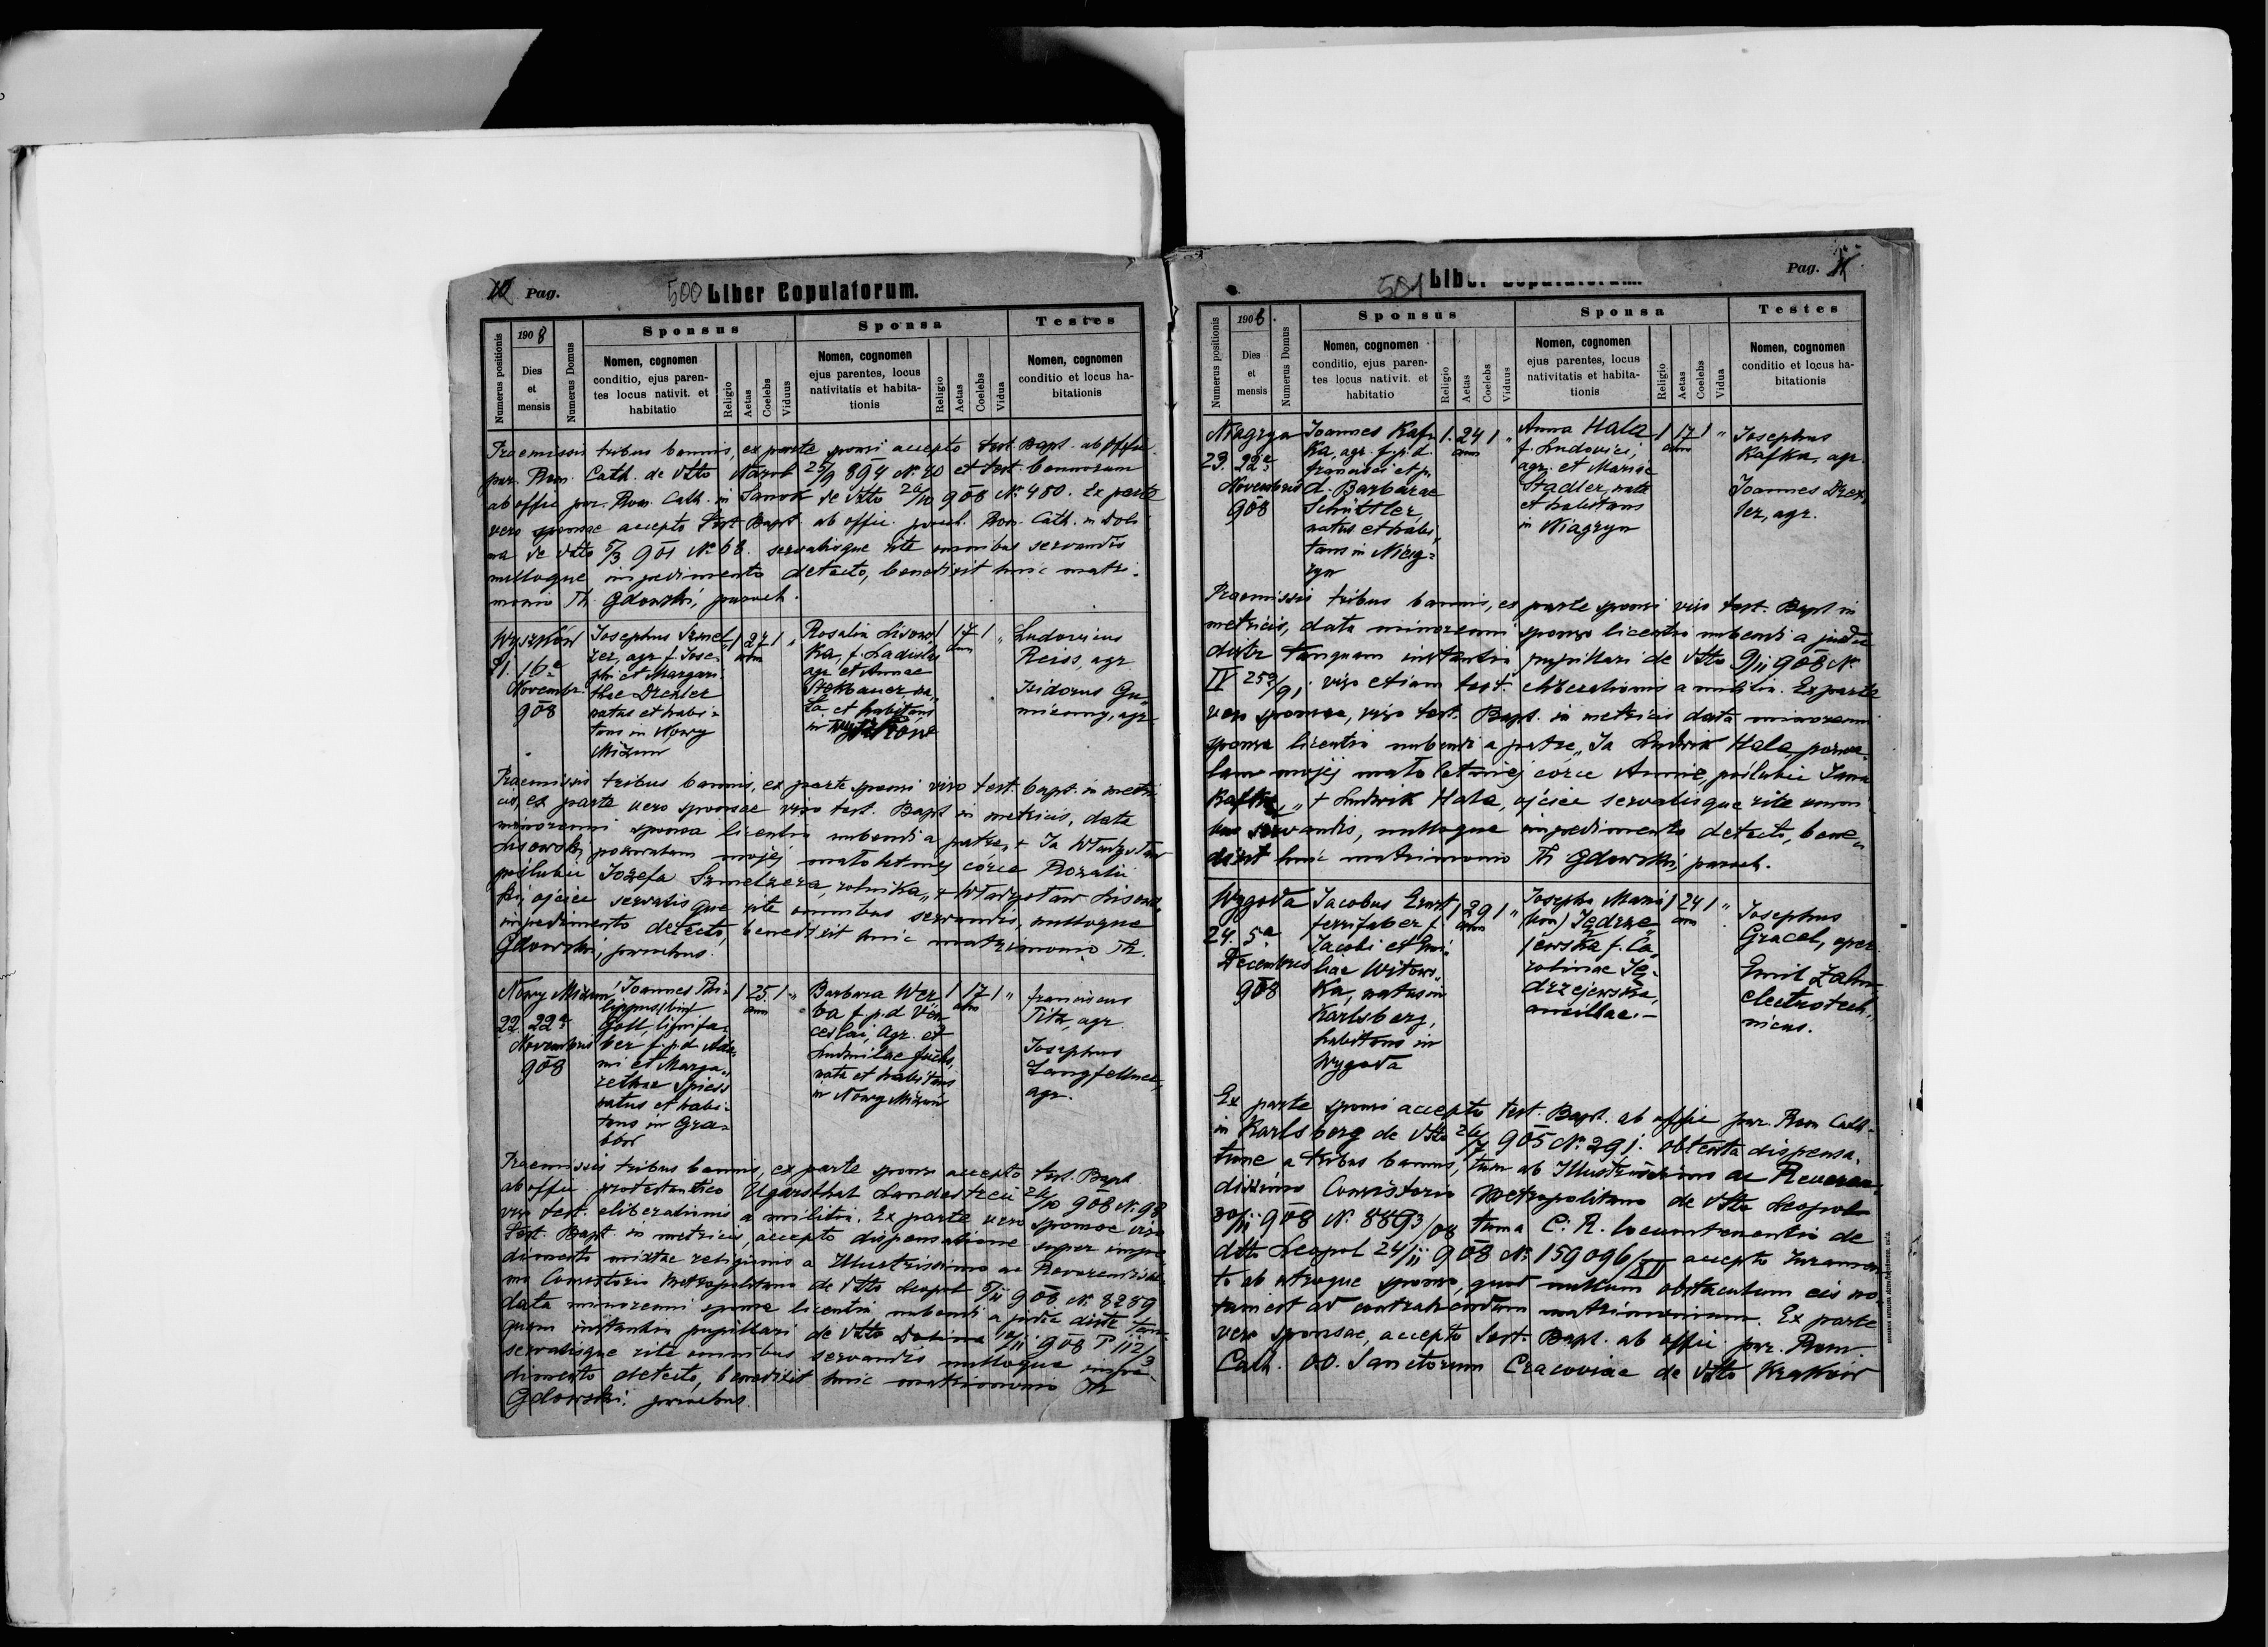 10 Pag.
500 Liber Copulatorum.
Numerus positionis
1908
Dies
et
mensis
Numerus Domus
Sponsus
Nomen, cognomen
conditio, ejus paren-
tes locus nativit. et
habitatio
Religio
Aetas
Coelebs
Viduus
Sponsa
Nomen, cognomen
ejus parentes, locus
nativitatis et habita-
tionis
Religio
Aetas
Coelebs
Vidua
Testes
Nomen, cognomen
conditio et locus ha-
bitationis
Praemissis tribus bannis, ex parte sponsi accepto test. Bapt. ab offic.
par. Rom. Cath. de dtto 25/9 894 N. 20 et test. bannorum
ab offic par. Rom. Cath. in Sanok de dtto 26/10 908 N. 480. Ex parte
vero sponsae accepto test. Bapt. ab offic. paroch. Rom. Cath. in Doli
na de dtto 5/3 901 N. 68. servatisque rite omnibus servandis
nulloque impedimento detecto, benedixit huic matri-
monio Th. Gdowski, paroch.
Wyszków
21. 16a
Novembr.
908
Josephus Szmel
zer, agr. f. Jose-
phi et Marga-
thae Drexler
natus et habi-
tans in Nowy
Mizun
27
ann
Rosalia Lisows
ka, f. Ladislai
agr. et Annae
Stokbauer, na-
ta et habitans
in Wyszków
17
ann
Ludovicus
Reiss, agr.
Isidorus Gu
mienny, agr.
Praemissis tribus bannis, ex parte sponsi viso test. bapt. in metri
cis, ex parte vero sponsae viso test. Bapt. in metricis, data
minorenni sponsa licentia nubendi a patre, + Ja Władysław
Lisowski pozwalam mojéj małoletniej córce Rozalii
poślubić Józefa Szmelzera, rolnika, + Władysław Lisow
ski, ojciec servatisque rite omnibus servandis, nulloque
impedimento detecto, benedixit huic matrimonio Th.
Gdowski, parochus.
Nowy Mizun
22. 22a
Novembris
908
Joannes Phi-
lippus
Goll, lignifa-
ber f. p. d. Ada-
mi et Marga-
rethae Spiess
natus et habi-
tans in Gra-
bów
25
ann
Barbara Wer
ba f. p. d. Ven
ceslai, agr. et
Ludmilae Fuchs,
nata et habitans
in Nowy Mizuń
17
ann
Franciscus
Titz, agr.
Josephus
Langfellner,
agr.
Praemissis tribus bannis, ex parte sponsi accepto test. Bapt.
ab offic. protestantico Ugarsthal Landestreu 26/10 908 N. 98
viso test. eliberationis a militia. Ex parte vero sponsae viso
test. Bapt. in metricis, accepto dispensatione super impe
dimento mixtae religionis a Illustrissimo ac Reverendissi-
mo Consistorio Metropolitano de dtto Leopol 5/11 908 N. 8289
data minorenni sponsa licentia nubendi a judic. distr. tan-
quam instantia pupillari de dtto Dolina 908 P 112/3
servatisque rite omnibus servandis nulloque impe-
dimento detecto, benedixit huic matrimonio Th
Gdowski, parochus.
Pag. 11
501 Liber Copulatorum.
Numerus positionis
1908.
Dies
et
mensis
Numerus Domus
Sponsus
Nomen, cognomen
conditio, ejus paren-
tes locus nativit. et
habitatio
Religio
Aetas
Coelebs
Viduus
Sponsa
Nomen, cognomen
ejus parentes, locus
nativitatis et habita-
tionis
Religio
Aetas
Coelebs
Vidua
Testes
Nomen, cognomen
conditio et locus ha-
bitationis
Niagryn
23. 22a
Novembris
908
Joannes Kaf
ka, agr. f. p. d.
Francisci et p.
d. Barbarae
Schüttler,
natus et habi-
tans in Niag-
ryn
24
ann
Anna Hala
f. Ludovici,
agr. et Mariae
Stadler, nata
et habitans
in Niagryn
17
ann
Josephus
Kafka, agr.
Joannes Drex
ler, agr.
Praemissis tribus bannis, ex parte sponsi viso test. Bapt. in
metricis, data minorenni sponso licentia nubendi a judic
distr. tanquam instantia pupillari de dtto 9/11 908 N.
IV viso etiam test. eliberationis a militia. Ex parte
vero sponsae, viso test. Bapt. in metricis data minorenni
sponsa licentia nubendi a patre „Ja Ludwik Hala pozwa
lam mojéj małoletniéj córce Annie, poślubić Jana
Kafkę," + Ludwik Hala, ojciec servatisque rite omni
bus servandis, nulloque impedimento detecto, bene-
dixit huic matrimonio Th Gdowski, paroch.
Wygoda
24. 5a
Decembris
908
Jacobus Ernst
ferrifaber f.
Jacobi et Emi-
liae Witows-
ka, natus in
Karlsberg,
habitans in
Wygoda
29
ann
Josepha Maria
Jędrze
jewska f. Ca
rolinae Ję-
drzejewska,
ancillae.-
24
ann
Josephus
Gracel, oper.
Emil Zahn
electrotech-
nicus.
Ex parte sponsi accepto test. Bapt. ab offic par. Rom Cath.
in Karlsberg de dtto 905 N. 291. obtenta dispensa-
tione a tribus bannis, tum ab Illustrissimo ac Reveren-
dissimo Consistorio Metropolitano de dtto Leopol
30/11 908 N. 8893/08 tum a C. R. locumtenentia de
dtto Leopol 24/11 908 N. 159096/XV accepto Juramen
to ab utroque sponso, quod nullum obstaculum eis no
tum est ad contrahendum matrimonium. Ex parte
vero sponsae, accepto test. Bapt. ab offic. par. Rom
Cath. OO. Sanctorum Cracoviae de dtto Kraków